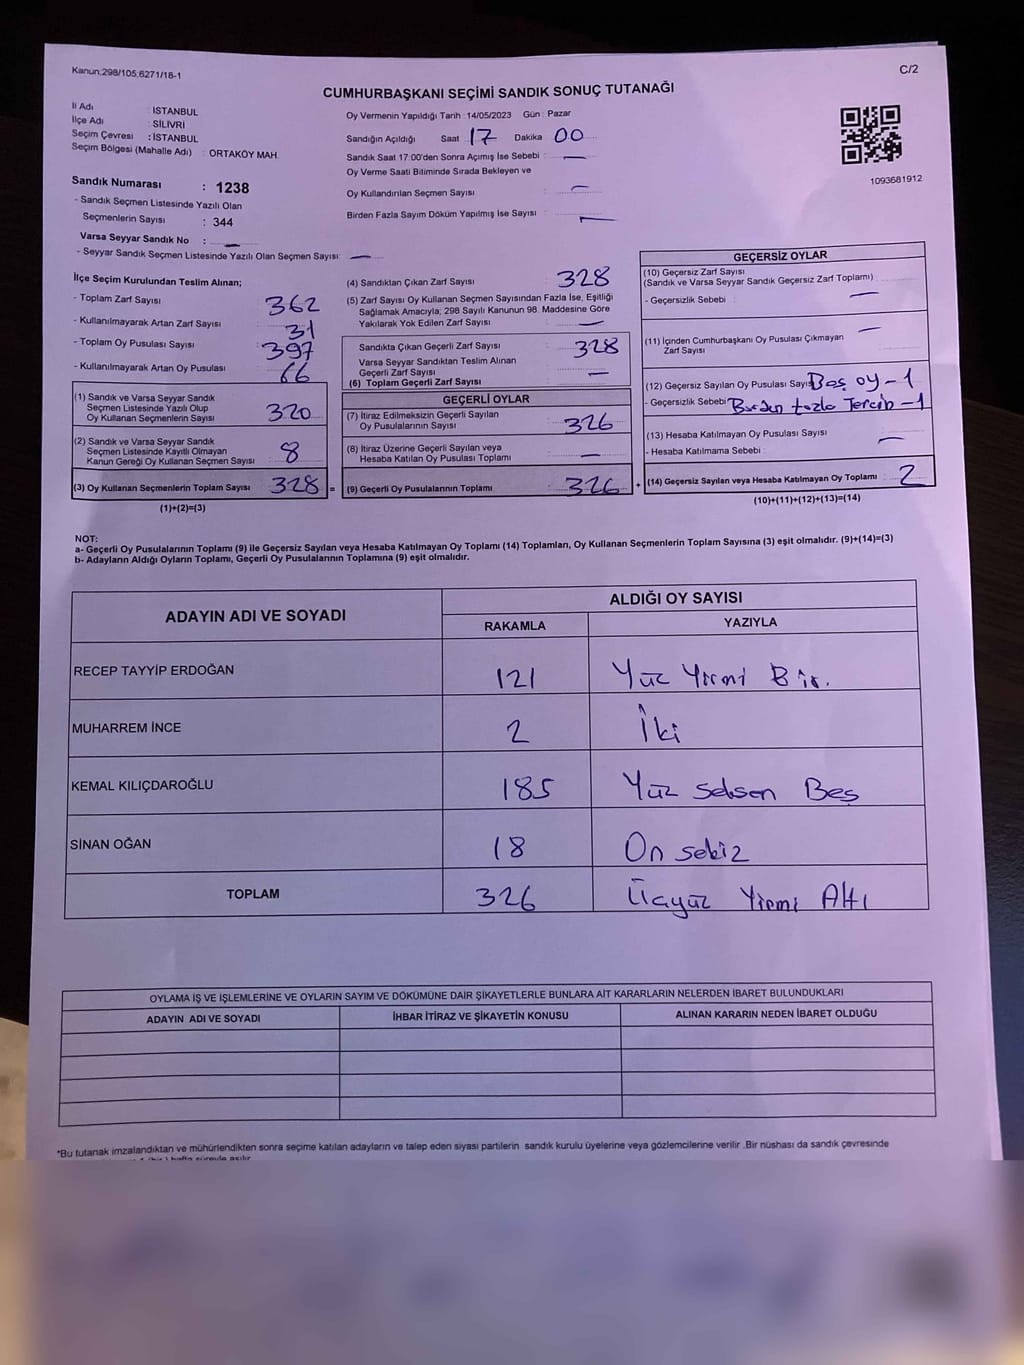 Kanun;298/105,6271/18-1
C/2
CUMHURBAŞKANI SEÇİMİ SANDIK SONUÇ TUTANAĞI
İl Adı : İSTANBUL
İlçe Adı : SİLİVRİ
Seçim Çevresi : İSTANBUL
Seçim Bölgesi (Mahalle Adı) : ORTAKÖY MAH.
Sandık Numarası : 1238
- Sandık Seçmen Listesinde Yazılı Olan
Seçmenlerin Sayısı : 344
Varsa Seyyar Sandık No : —
- Seyyar Sandık Seçmen Listesinde Yazılı Olan Seçmen Sayısı: —
Oy Vermenin Yapıldığı Tarih : 14/05/2023 Gün : Pazar
Sandığın Açıldığı Saat 17 Dakika 00
Sandık Saat 17:00'den Sonra Açımış İse Sebebi : —
Oy Verme Saati Bitiminde Sırada Bekleyen ve
Oy Kullandırılan Seçmen Sayısı : —
Birden Fazla Sayım Döküm Yapılmış İse Sayısı : —
1093681912
İlçe Seçim Kurulundan Teslim Alınan;
- Toplam Zarf Sayısı 362
- Kullanılmayarak Artan Zarf Sayısı 31
- Toplam Oy Pusulası Sayısı 397
- Kullanılmayarak Artan Oy Pusulası 66
(1) Sandık ve Varsa Seyyar Sandık
Seçmen Listesinde Yazılı Olup
Oy Kullanan Seçmenlerin Sayısı 320
(2) Sandık ve Varsa Seyyar Sandık
Seçmen Listesinde Kayıtlı Olmayan
Kanun Gereği Oy Kullanan Seçmen Sayısı 8
(3) Oy Kullanan Seçmenlerin Toplam Sayısı 328 =
(1)+(2)=(3)
(4) Sandıktan Çıkan Zarf Sayısı 328
(5) Zarf Sayısı Oy Kullanan Seçmen Sayısından Fazla İse, Eşitliği
Sağlamak Amacıyla; 298 Sayılı Kanunun 98. Maddesine Göre
Yakılarak Yok Edilen Zarf Sayısı —
Sandıkta Çıkan Geçerli Zarf Sayısı 328
Varsa Seyyar Sandıktan Teslim Alınan
Geçerli Zarf Sayısı —
(6) Toplam Geçerli Zarf Sayısı
GEÇERLİ OYLAR
(7) İtiraz Edilmeksizin Geçerli Sayılan
Oy Pusulalarının Sayısı 326
(8) İtiraz Üzerine Geçerli Sayılan veya
Hesaba Katılan Oy Pusulası Toplamı —
(9) Geçerli Oy Pusulalarının Toplamı 326 +
GEÇERSİZ OYLAR
(10) Geçersiz Zarf Sayısı
(Sandık ve Varsa Seyyar Sandık Geçersiz Zarf Toplamı)
- Geçersizlik Sebebi : —
(11) İçinden Cumhurbaşkanı Oy Pusulası Çıkmayan —
Zarf Sayısı
(12) Geçersiz Sayılan Oy Pusulası Sayıs Boş oy - 1
- Geçersizlik Sebebi Birden fazla Tercih - 1
(13) Hesaba Katılmayan Oy Pusulası Sayısı —
- Hesaba Katılmama Sebebi :
(14) Geçersiz Sayılan veya Hesaba Katılmayan Oy Toplamı 2
(10)+(11)+(12)+(13)=(14)
NOT:
a- Geçerli Oy Pusulalarının Toplamı (9) ile Geçersiz Sayılan veya Hesaba Katılmayan Oy Toplamı (14) Toplamları, Oy Kullanan Seçmenlerin Toplam Sayısına (3) eşit olmalıdır. (9)+(14)=(3)
b- Adayların Aldığı Oyların Toplamı, Geçerli Oy Pusulalarının Toplamına (9) eşit olmalıdır.
ADAYIN ADI VE SOYADI
ALDIĞI OY SAYISI
RAKAMLA YAZIYLA
RECEP TAYYİP ERDOĞAN 121 Yüz Yirmi Bir.
MUHARREM İNCE 2 İki
KEMAL KILIÇDAROĞLU 185 Yüz seksen Beş
SİNAN OĞAN 18 On sekiz
TOPLAM 326 Üçyüz Yirmi Altı
OYLAMA İŞ VE İŞLEMLERİNE VE OYLARIN SAYIM VE DÖKÜMÜNE DAİR ŞİKAYETLERLE BUNLARA AİT KARARLARIN NELERDEN İBARET BULUNDUKLARI
ADAYIN ADI VE SOYADI İHBAR İTİRAZ VE ŞİKAYETİN KONUSU ALINAN KARARIN NEDEN İBARET OLDUĞU
*Bu tutanak imzalandıktan ve mühürlendikten sonra seçime katılan adayların ve talep eden siyasi partilerin sandık kurulu üyelerine veya gözlemcilerine verilir .Bir nüshası da sandık çevresinde